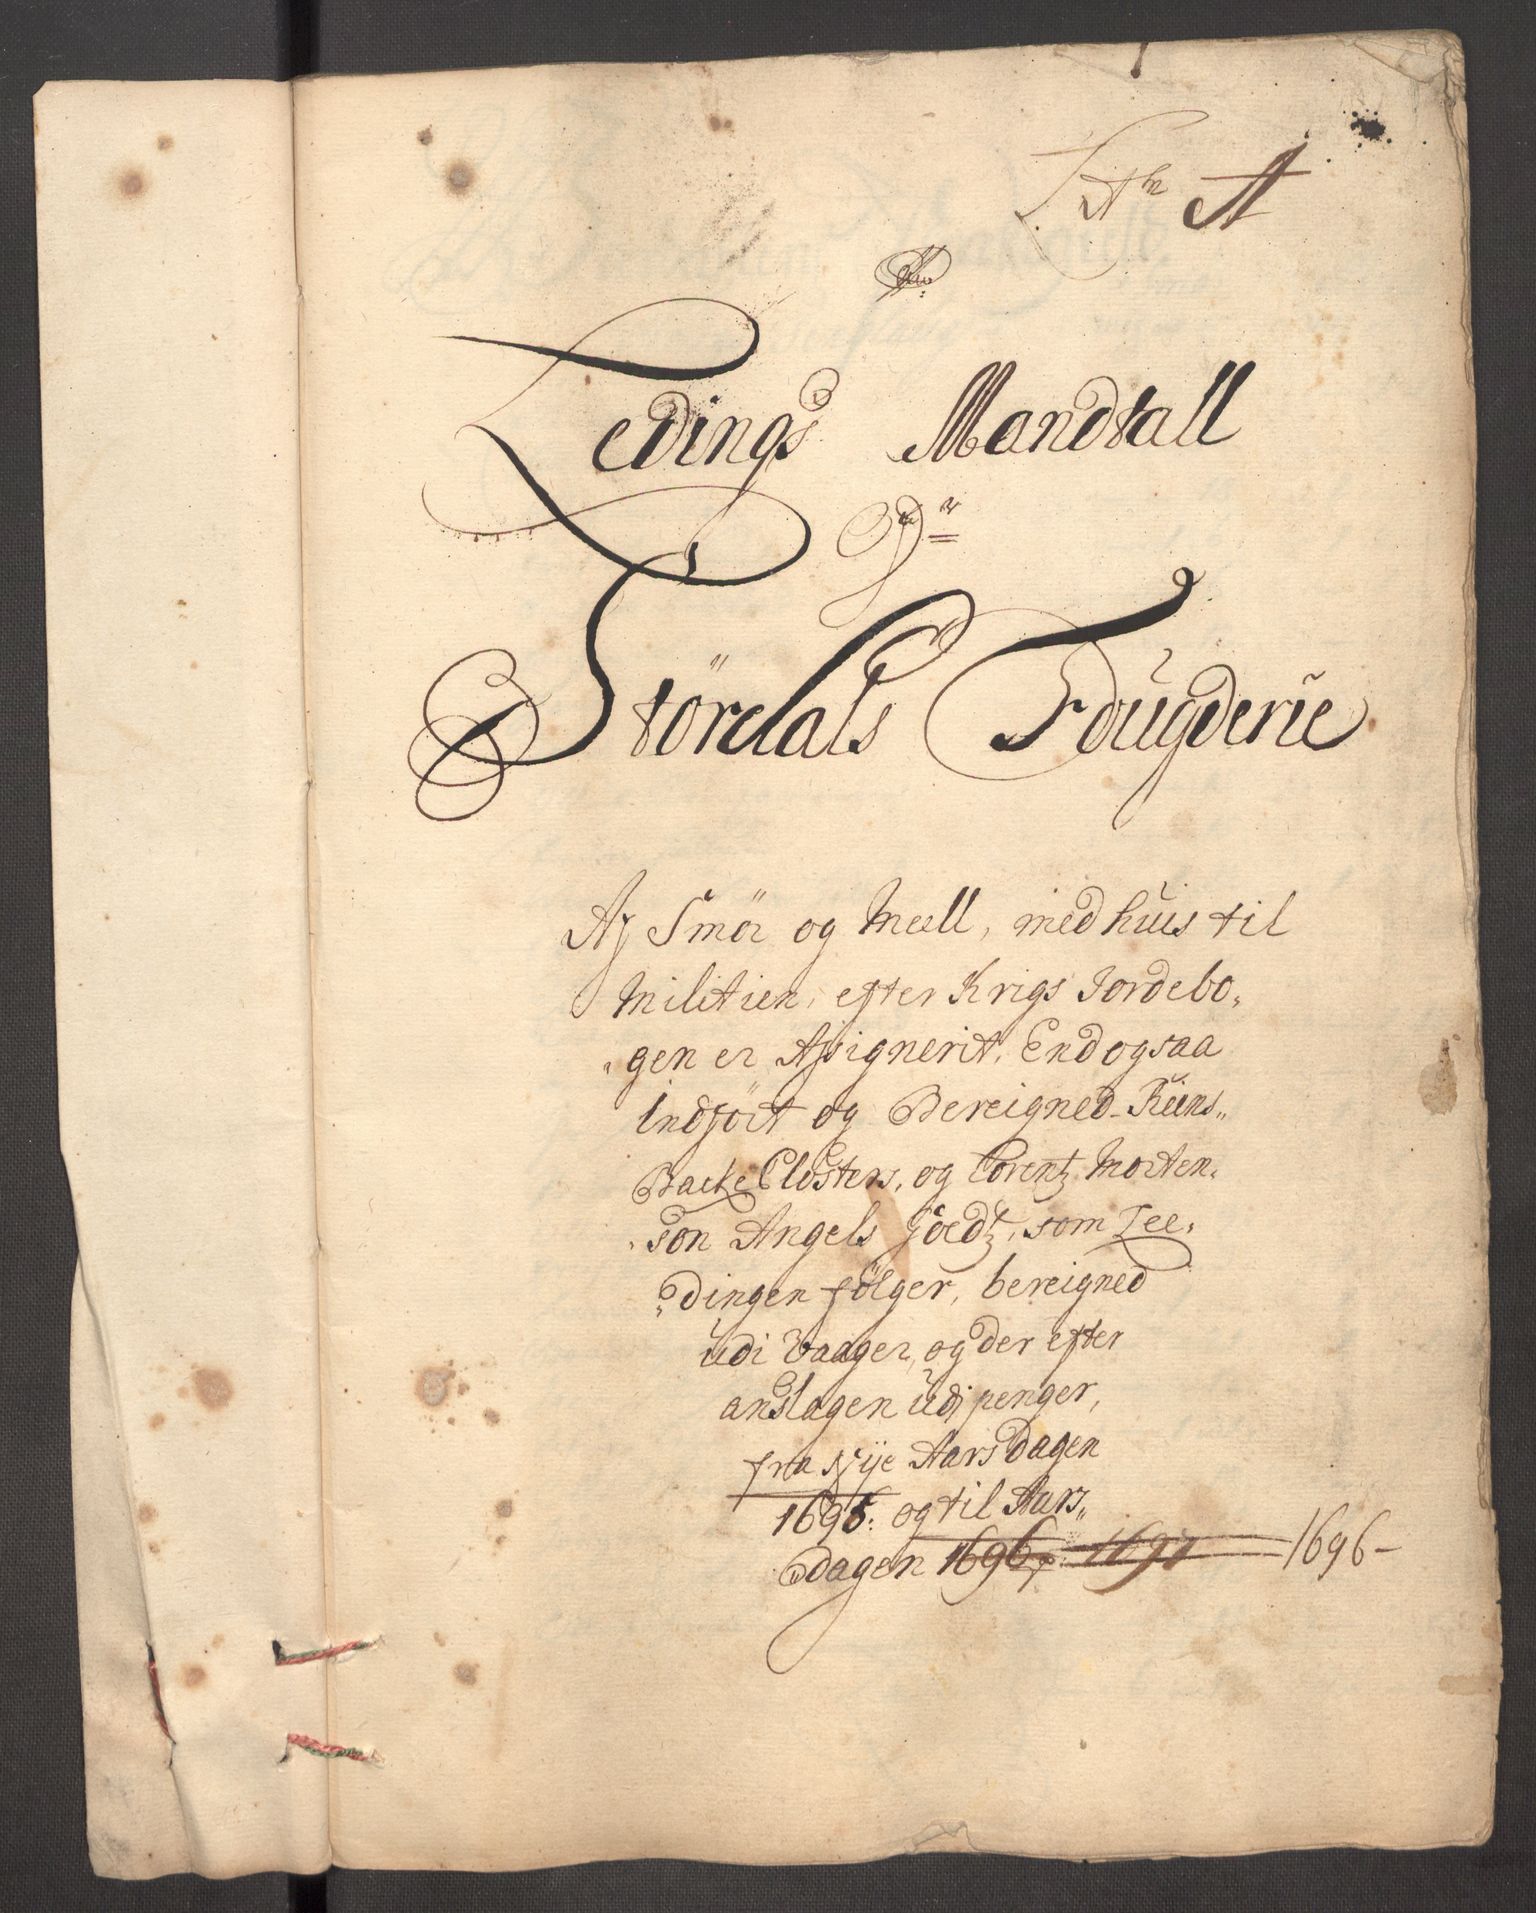 Litr A
Ledings Mandtall
Störedals Fougderie
Af Smör og Meell, med huis til
Militien, efter Krigs Jordebo„
„gen er Assignerit, End ogsaa
Indfört og Bereigned Reens„
Backe Closters, og Lorentz Morten„
„son Angels Goedtz, som Lee„
„dingen fölger, bereigned
udi Vaager, og der efter
anslagen udi penger,
fra Nye Aarsdagen
1695. og til Aars„
dagen 1696 1697 1696–